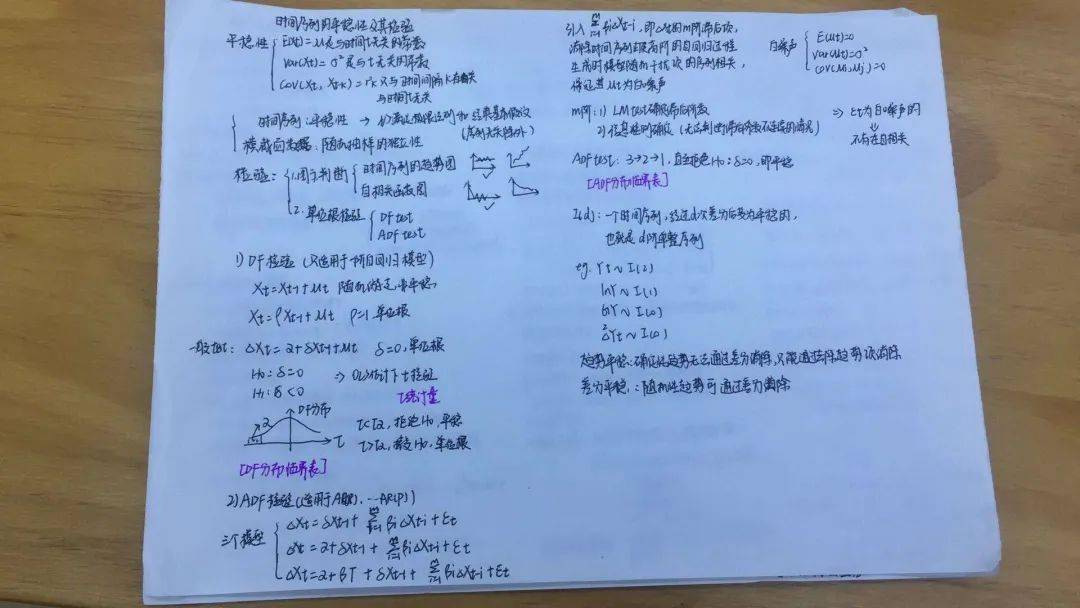 时间序列的平稳性及其检验
平稳性 { E(Xt)=μ 是与时间t无关的常数
Var(Xt)=σ² 是与t无关的常数
Cov(Xt, Xt+k)=rk 只与时间间隔k有关
与时间t无关
时间序列:平稳性 →
横截面数据:随机抽样的独立性
检验: { 1.图示判断 { 时间序列的趋势图
自相关函数图
2. 单位根检验 { DF test
ADF test
1) DF检验 (只适用于一阶自回归模型)
Xt=Xt-1+μt 随机游走,非平稳
Xt=ρXt-1+μt ρ=1,单位根
一般地: ΔXt=α+δXt-1+μt δ=0,单位根
H0:δ=0 ⇒ OLS估计下t检验
H1:δ<0 τ统计量
α DF分布 τ
τ<τα, 拒绝H0, 平稳
τ>τα, 接受H0, 单位根
[DF分布临界表]
2) ADF检验(适用于 …AR(P))
三个模型 { ΔXt=δXt-1+ Σ βiΔXt-i+εt
ΔXt=α+δXt-1+ Σ βiΔXt-i+εt
ΔXt=α+βT+δXt-1+ Σ βiΔXt-i+εt
引入 Σ βiΔXt-i, 即ΔXt的m阶滞后项,
消除时间序列由更高阶的自回归过程
生成时模型随机干扰项的序列相关,
保证其μt为白噪声
白噪声 { E(μt)=0
Var(μt)=σ²
Cov(μi,μj)=0
m阶: 1) LM test确定滞后阶数
2) 信息准则确定
⇒ εt为白噪声的
⇓
不存在自相关
ADF test: 3→2→1, 直到拒绝H0:δ=0,即平稳
[ADF分布临界表]
I(d): 一个时间序列, 经过d次差分后变为平稳的,
也就是d阶单整序列
eg. Yt ~ I(2)
lnY ~ I(1)
~ I(0)
²ΔYt ~ I(0)
趋势平稳:确定性趋势无法通过差分消除,只能通过除去趋势项消除
差分平稳:随机性趋势可通过差分消除